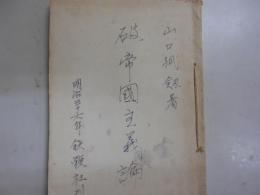 山口孤劍著
破帝國主義論
明治三十六年 鉄鞭社刊